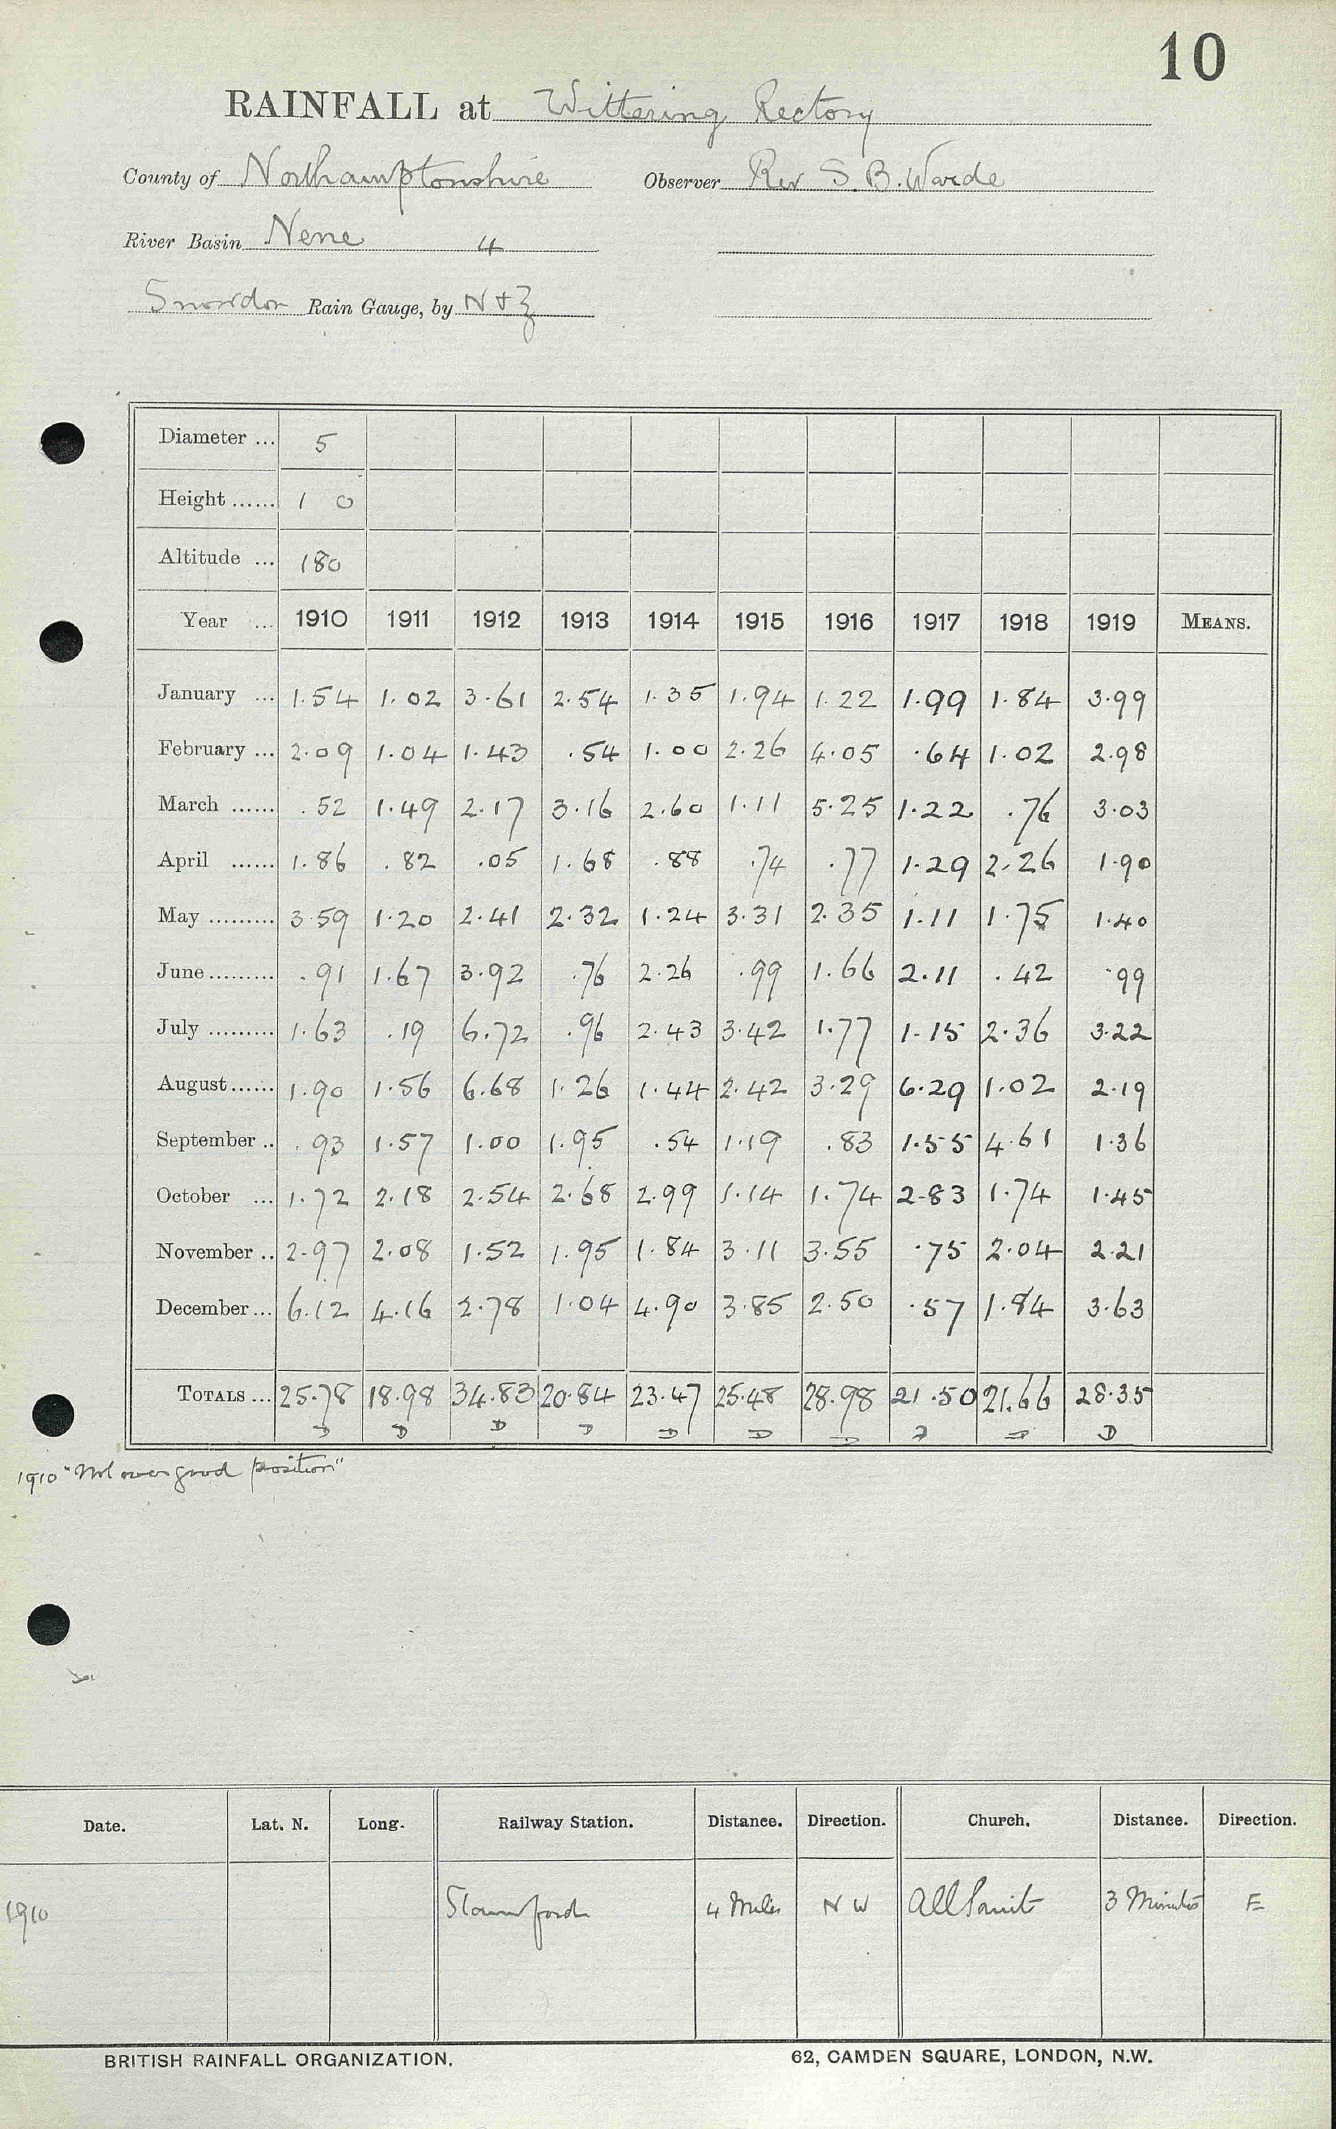 10
RAINFALL at Wittering Rectory
County of Northamptonshire Observer Rev S. B. Warde
River Basin Nene 4
Snowdon Rain Gauge, by N & Z
Diameter ... 5
Height ...... 1 0
Altitude ... 180
Year ... 1910 1911 1912 1913 1914 1915 1916 1917 1918 1919 MEANS.
January ... 1.54 1.02 3.61 2.54 1.35 1.94 1.22 1.99 1.84 3.99
February ... 2.09 1.04 1.43 .54 1.00 2.26 4.05 .64 1.02 2.98
March ...... .52 1.49 2.17 3.16 2.60 1.11 5.25 1.22 .76 3.03
April ...... 1.86 .82 .05 1.68 .88 .74 .77 1.29 2.26 1.90
May ......... 3.59 1.20 2.41 2.32 1.24 3.31 2.35 1.11 1.75 1.40
June ......... .91 1.67 3.92 .76 2.26 .99 1.66 2.11 .42 .99
July ......... 1.63 .19 6.72 .96 2.43 3.42 1.77 1.15 2.36 3.22
August ...... 1.90 1.56 6.68 1.26 1.44 2.42 3.29 6.29 1.02 2.19
September .. .93 1.57 1.00 1.95 .54 1.19 .83 1.55 4.61 1.36
October ... 1.72 2.18 2.54 2.68 2.99 1.14 1.74 2.83 1.74 1.45
November .. 2.97 2.08 1.52 1.95 1.84 3.11 3.55 .75 2.04 2.21
December ... 6.12 4.16 2.78 1.04 4.90 3.85 2.50 .57 1.84 3.63
TOTALS ... 25.78 18.98 34.83 20.84 23.47 25.48 28.98 21.50 21.66 28.35
D D D D D D D D D D
1910 "Not over good position"
Date. Lat. N. Long. Railway Station. Distance. Direction. Church. Distance. Direction.
1910 Stamford 4 Miles N W All Saints 3 Minutes E
BRITISH RAINFALL ORGANIZATION. 62, CAMDEN SQUARE, LONDON, N.W.